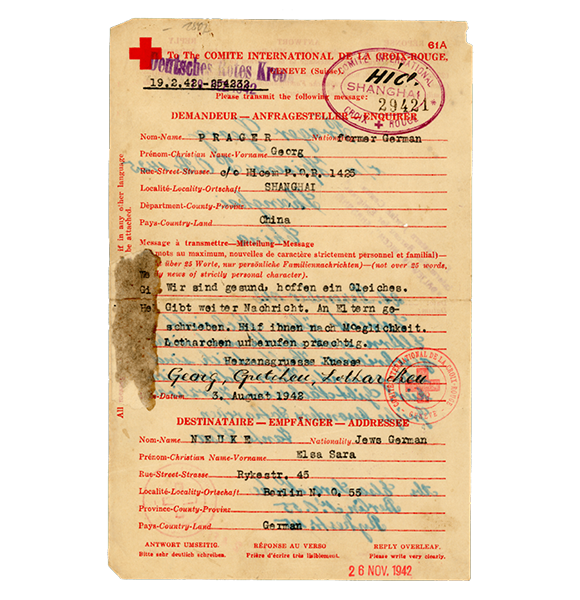 61A
To The COMITE INTERNATIONAL DE LA CROIX-ROUGE,
Deutsches Rotes Kreuz
GENÈVE (Suisse)
19.2.42
Please transmit the following message:
COMITÉ INTERNATIONAL
HICM
SHANGHAI
29421
CROIX ROUGE
DEMANDEUR — ANFRAGESTELLER — ENQUIRER
Nom-Name PRAGER Nation former German
Prénom-Christian Name-Vorname Georg
Rue-Street-Strasse c/o Hicem P.O.B. 1425
Localité-Locality-Ortschaft SHANGHAI
Départment-County-Provinz
Pays-Country-Land China
Message à transmettre—Mitteilung—Message
mots au maximum, nouvelles de caractère strictement personnel et familial)—
über 25 Worte, nur persönliche Familiennachrichten)—(not over 25 words,
news of strictly personal character).
Wir sind gesund, hoffen ein Gleiches.
Gibt weiter Nachricht. An Eltern ge-
schrieben. Hilf ihnen nach Moeglichkeit.
Lotharchen unberufen praechtig.
Herzensgruesse Kuesse
Georg, Gretchen, Lotharchen
Datum 3. August 1942
if in any other language
be attached.
All
COMITÉ INTERNATIONAL DE LA CROIX-ROUGE
GENÈVE
DESTINATAIRE — EMPFÄNGER — ADDRESSEE
Nom-Name NEUKE Nationality Jews German
Prénom-Christian Name-Vorname Elsa Sara
Rue-Street-Strasse Rykestr. 45
Localité-Locality-Ortschaft Berlin N. O. 55
Province-County-Provinz
Pays-Country-Land German
ANTWORT UMSEITIG. RÉPONSE AU VERSO REPLY OVERLEAF.
Bitte sehr deutlich schreiben. Prière d'écrire très lisiblement. Please write very clearly.
26 NOV. 1942